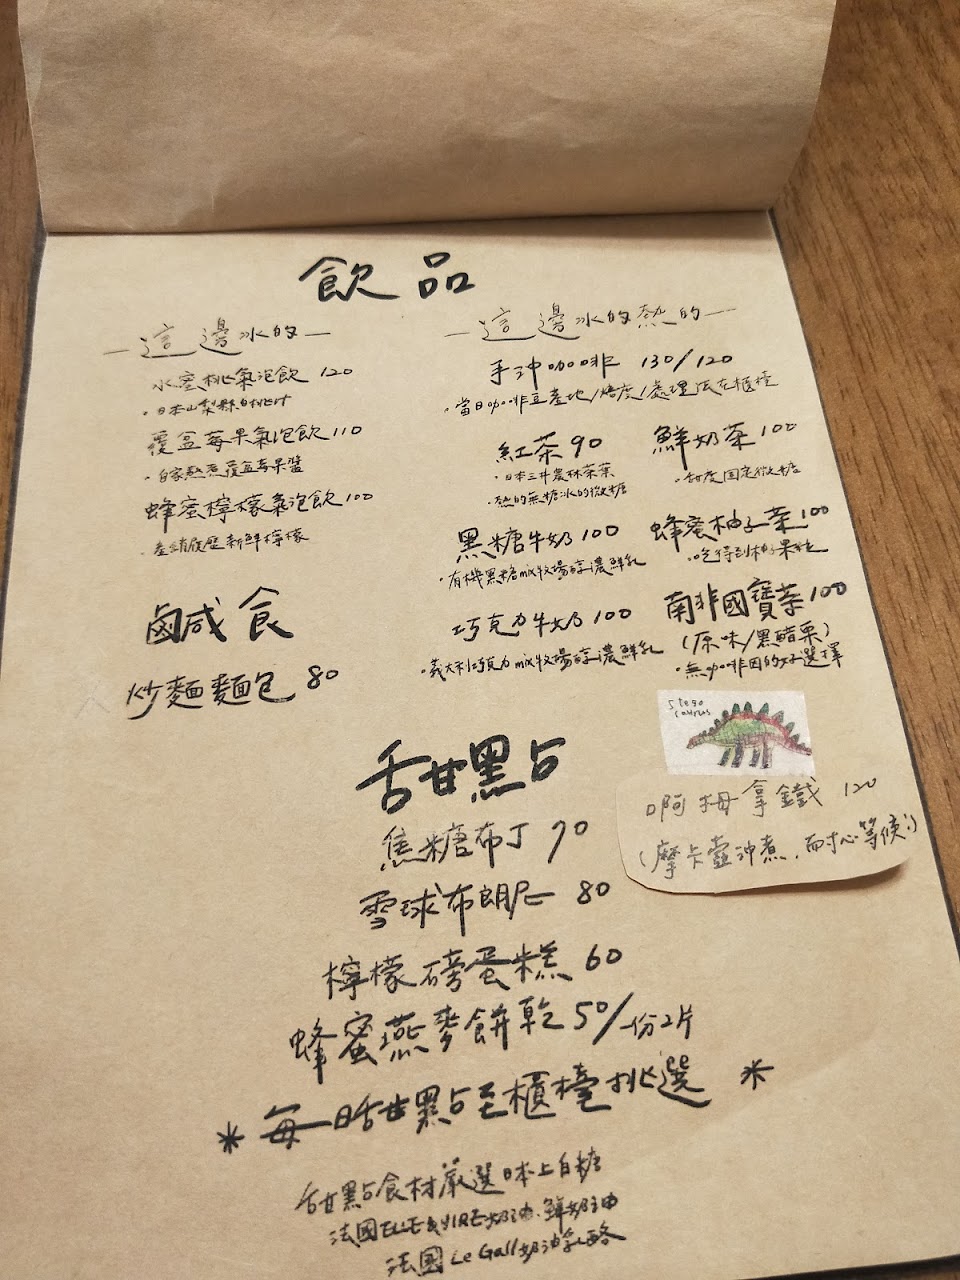 飲品
—這邊冰的—
水蜜桃氣泡飲 120
·日本山梨縣白桃汁
覆盆莓果氣泡飲 110
·自家熬煮覆盆莓果醬
蜂蜜檸檬氣泡飲 100
·產銷履歷新鮮檸檬
—這邊冰的熱的—
手沖咖啡 130/120
·當日咖啡豆產地/焙度/處理法在櫃檯
紅茶 90
·日本三井農林茶葉
·熱的無糖冰的微糖
鮮奶茶 100
·甜度固定微糖
黑糖牛奶 100
·有機黑糖mix牧場醇濃鮮乳
蜂蜜柚子茶 100
·吃得到柚子果粒
巧克力牛奶 100
·義大利巧克力mix牧場醇濃鮮乳
南非國寶茶 100
(原味/黑醋栗)
·無咖啡因的好選擇
Stego
saurus
啊拇拿鐵 120
(摩卡壺沖煮,耐心等候!)
鹹食
炒麵麵包 80
甜點
焦糖布丁 90
雪球布朗尼 80
檸檬磅蛋糕 60
蜂蜜燕麥餅乾 50/份2片
*每日甜點至櫃檯挑選*
甜點食材嚴選日本上白糖
法國ELLE & VIRE奶油.鮮奶油
法國Le Gall奶油乳酪